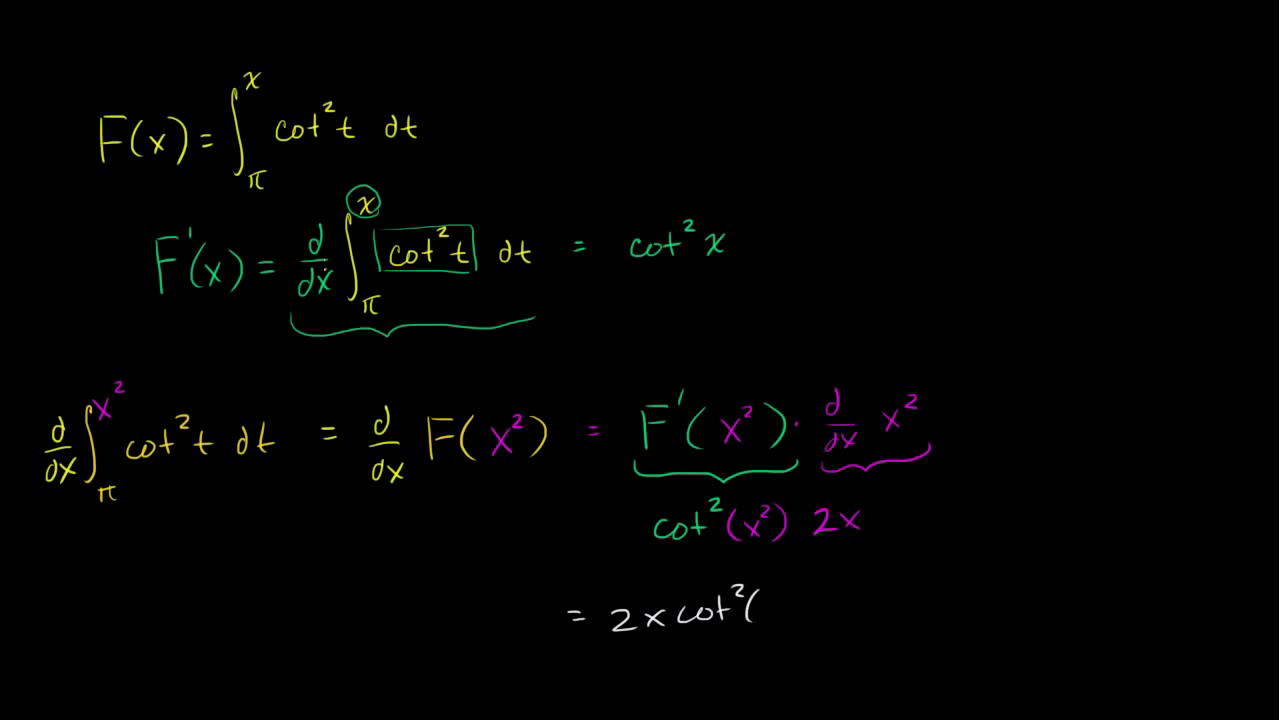 F(x) = ∫_π^x cot² t dt
F'(x) = d/dx ∫_π^x cot² t dt = cot² x
d/dx ∫_π^(x²) cot² t dt = d/dx F(x²) = F'(x²) · d/dx x²
cot² (x²) 2x
= 2x cot² (